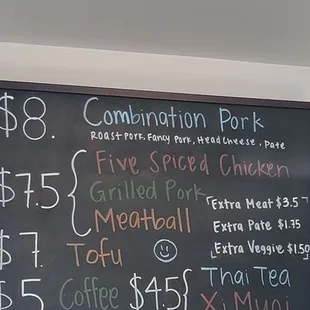 $8. Combination Pork
Roast Pork, Fancy Pork, Head Cheese, Pate
$7.5 { Five Spiced Chicken
Grilled Pork
Meatball
Extra Meat $3.5
Extra Pate $1.75
Extra Veggie $1.50
$7. Tofu
$5 Coffee $4.5 { Thai Tea
Xi Muoi